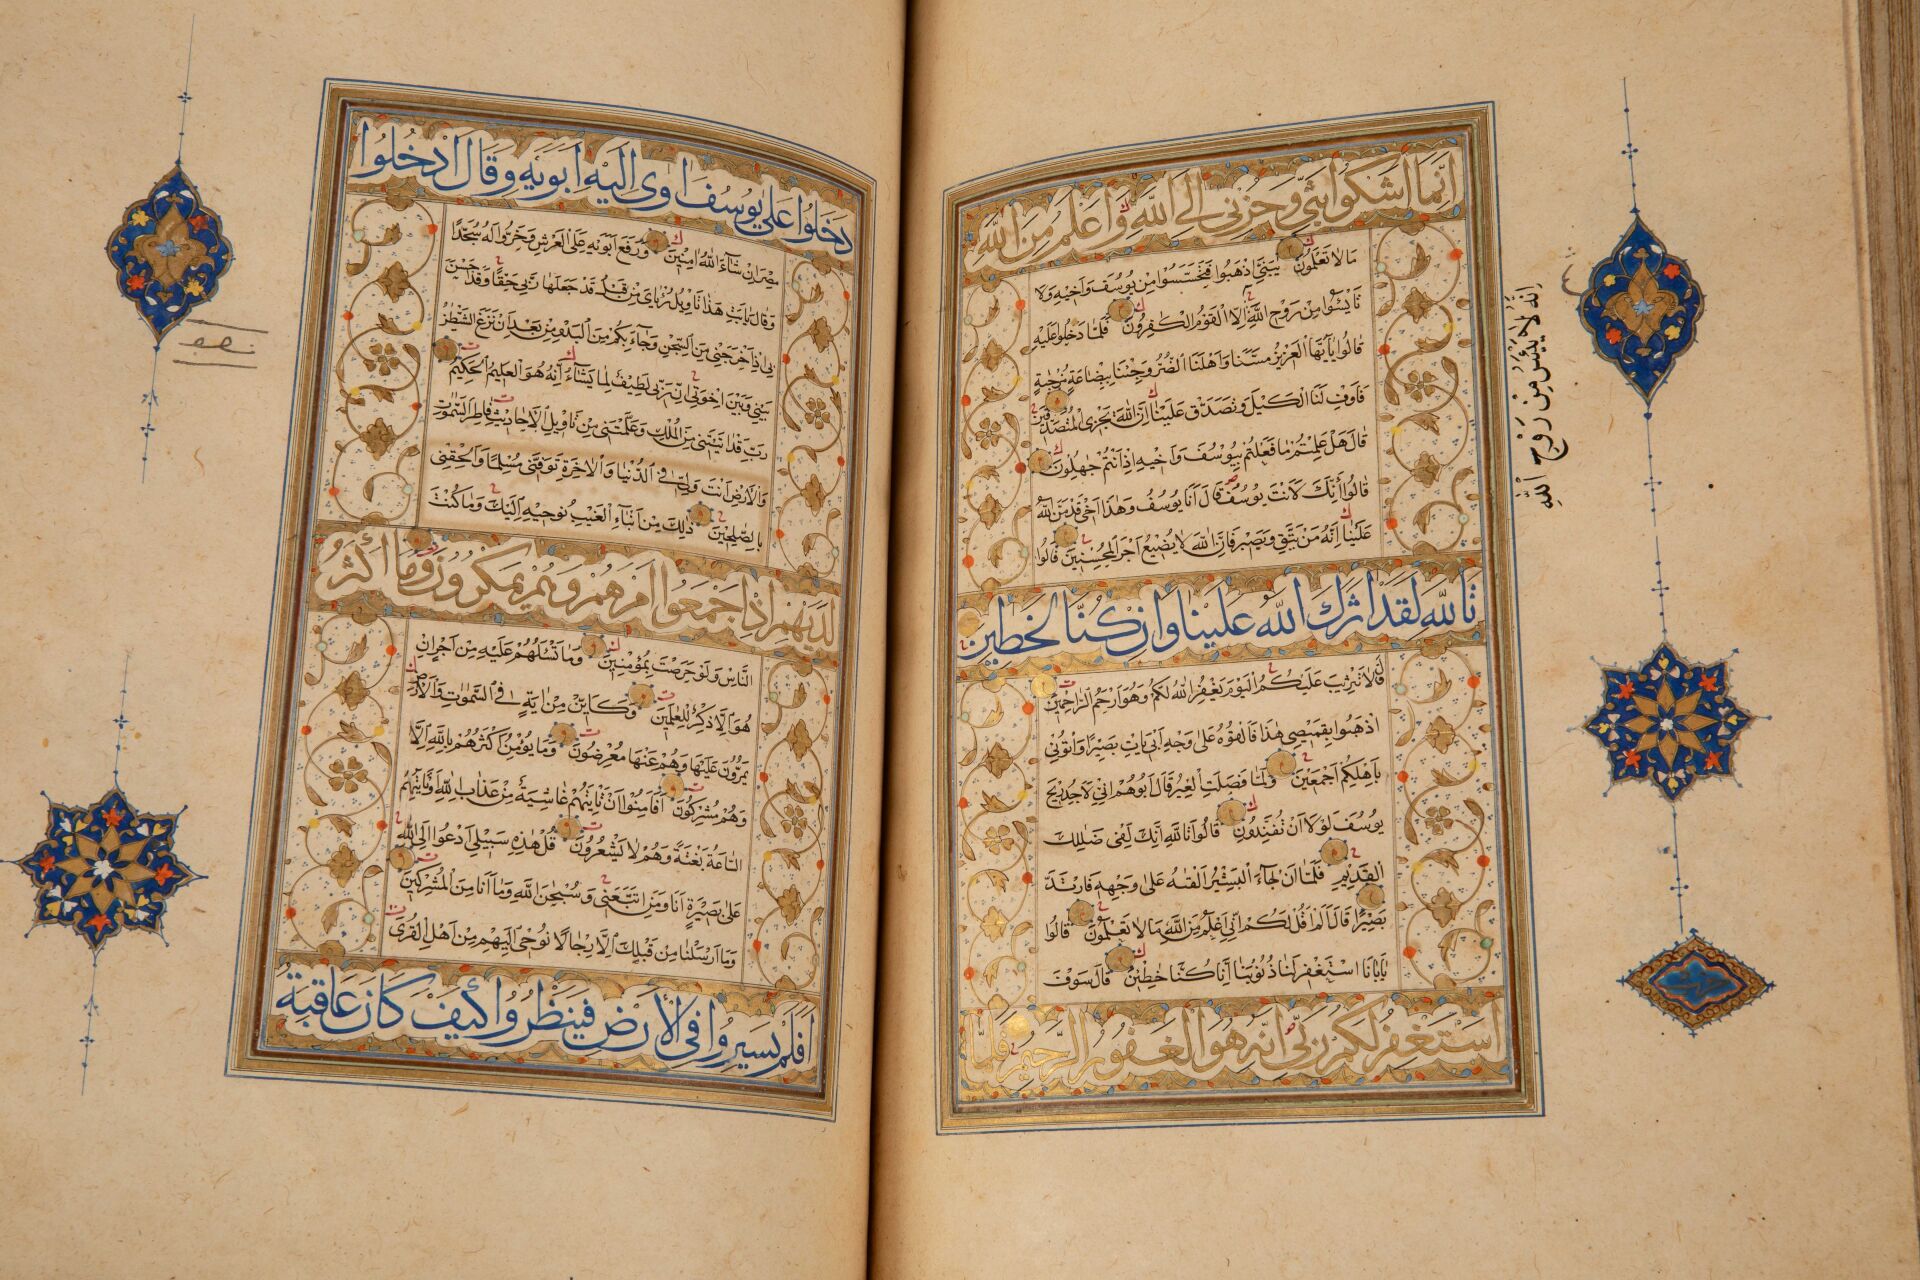 انما اشكوا بثى وحزنى الى الله واعلم من الله
ما لا تعلمون يبنى اذهبوا فتحسسوا من يوسف واخيه ولا
تايئسوا من روح الله الا القوم الكفرون فلما دخلوا عليه
قالوا يايها العزيز مسنا واهلنا الضر وجئنا ببضاعة مزجية
فاوف لنا الكيل وتصدق علينا ان الله يجزى المتصدقين
قال هل علمتم ما فعلتم بيوسف واخيه اذ انتم جهلون
قالوا أئنك لانت يوسف قال انا يوسف وهذا اخى قد من الله
علينا انه من يتق ويصبر فان الله لا يضيع اجر المحسنين قالوا
تالله لقد اثرك الله علينا وان كنا لخطين
قال لا تثريب عليكم اليوم يغفر الله لكم وهو ارحم الراحمين
اذهبوا بقميصى هذا فالقوه على وجه ابى يات بصيرا واتونى
باهلكم اجمعين ولما فصلت العير قال ابوهم انى لاجد ريح
يوسف لولا ان تفندون قالوا تالله انك لفى ضللك
القديم فلما ان جاء البشير القه على وجهه فارتد
بصيرا قال الم اقل لكم انى اعلم من الله ما لا تعلمون قالوا
يابانا استغفر لنا ذنوبنا انا كنا خطين قال سوف
استغفر لكم ربى انه هو الغفور الرحيم فلما
انه لا يايئس من روح الله
دخلوا على يوسف اوى اليه ابويه وقال ادخلوا
مصر ان شاء الله امنين ورفع ابويه على العرش وخروا له سجدا
وقال يابت هذا تاويل رءياى من قبل قد جعلها ربى حقا وقد احسن
بى اذ اخرجنى من السجن وجاء بكم من البدو من بعد ان نزغ الشيطن
بينى وبين اخوتى ان ربى لطيف لما يشاء انه هو العليم الحكيم
رب قد اتيتنى من الملك وعلمتنى من تاويل الاحاديث فاطر السموت
والارض انت ولى فى الدنيا والاخرة توفنى مسلما والحقنى
بالصلحين ذلك من انباء الغيب نوحيه اليك وما كنت
لديهم اذ اجمعوا امرهم وهم يمكرون وما أكثر
الناس ولو حرصت بمؤمنين وما تسئلهم عليه من اجر ان
هو الا ذكر للعلمين وكاين من اية فى السموت والارض
يمرون عليها وهم عنها معرضون وما يؤمن اكثرهم بالله الا
وهم مشركون افامنوا ان تاتيهم غاشية من عذاب الله او تاتيهم
الساعة بغتة وهم لا يشعرون قل هذه سبيلى ادعوا الى الله
على بصيرة انا ومن اتبعنى وسبحن الله وما انا من المشركين
وما ارسلنا من قبلك الا رجالا نوحى اليهم من اهل القرى
افلم يسيروا فى الأرض فينظروا كيف كان عاقبة